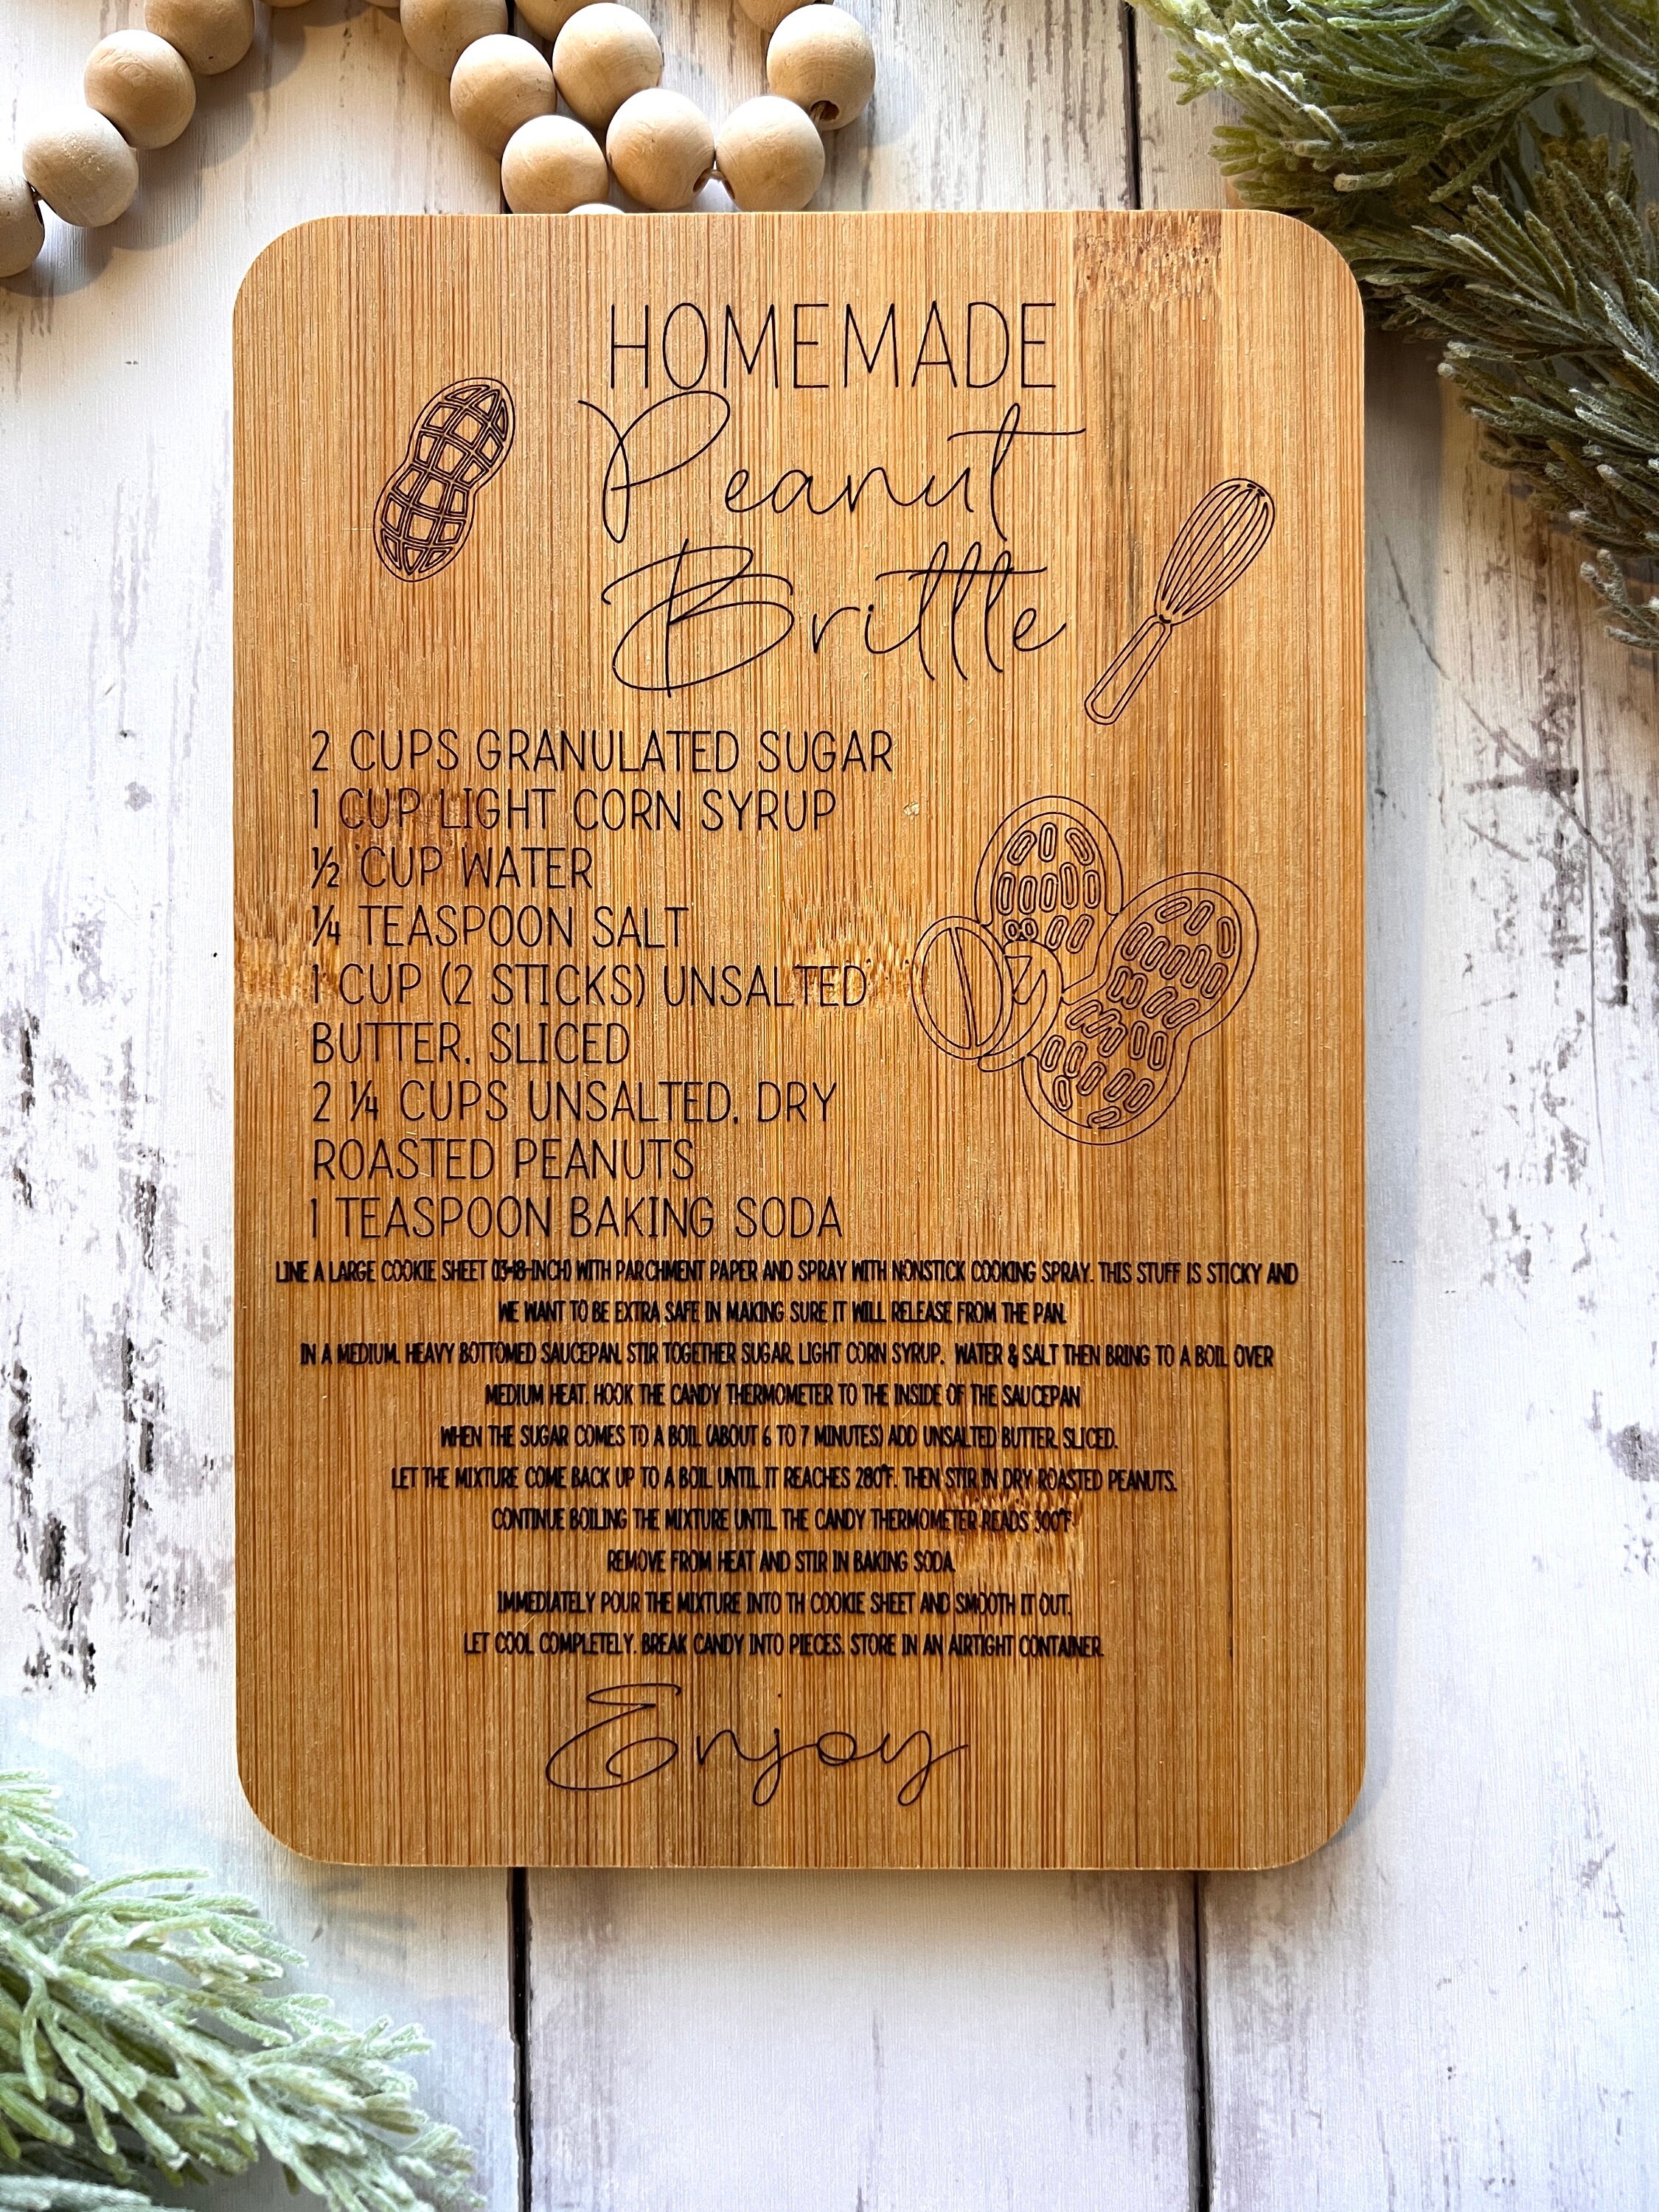 HOMEMADE
Peanut
Brittle
2 CUPS GRANULATED SUGAR
1 CUP LIGHT CORN SYRUP
½ CUP WATER
¼ TEASPOON SALT
1 CUP (2 STICKS) UNSALTED
BUTTER, SLICED
2 ¼ CUPS UNSALTED, DRY
ROASTED PEANUTS
1 TEASPOON BAKING SODA
LINE A LARGE COOKIE SHEET (13×18-INCH) WITH PARCHMENT PAPER AND SPRAY WITH NONSTICK COOKING SPRAY. THIS STUFF IS STICKY AND
WE WANT TO BE EXTRA SAFE IN MAKING SURE IT WILL RELEASE FROM THE PAN.
IN A MEDIUM, HEAVY BOTTOMED SAUCEPAN, STIR TOGETHER SUGAR, LIGHT CORN SYRUP, WATER & SALT THEN BRING TO A BOIL OVER
MEDIUM HEAT. HOOK THE CANDY THERMOMETER TO THE INSIDE OF THE SAUCEPAN
WHEN THE SUGAR COMES TO A BOIL (ABOUT 6 TO 7 MINUTES) ADD UNSALTED BUTTER, SLICED.
LET THE MIXTURE COME BACK UP TO A BOIL UNTIL IT REACHES 280°F. THEN STIR IN DRY ROASTED PEANUTS.
CONTINUE BOILING THE MIXTURE UNTIL THE CANDY THERMOMETER READS 300°F
REMOVE FROM HEAT AND STIR IN BAKING SODA.
IMMEDIATELY POUR THE MIXTURE INTO TH COOKIE SHEET AND SMOOTH IT OUT.
LET COOL COMPLETELY. BREAK CANDY INTO PIECES. STORE IN AN AIRTIGHT CONTAINER.
Enjoy